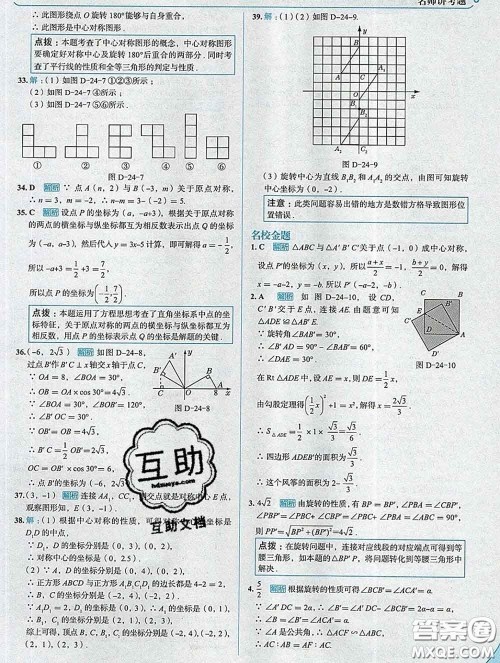 名师讲考题
∴此图形绕点 O 旋转180°能与自身重合,
∴此图形是中心对称图形.
点拨：本题考查了中心对称图形的概念，中心对称图形
要确定好对称中心及旋转180°后重合的两部分. 同时考
查了平行线的性质和全等三角形的判定与性质.
33. 解：(1) 如图 D-24-7 ①②③所示；
(2) 如图 D-24-7 ④所示；
(3) 如图 D-24-7 ⑤⑥所示.
① ② ③ ④ ⑤ ⑥
图 D-24-7
34. D 解析 ∵ 点 A (n, 2) 与 B (-3, m) 关于原点对称,
∴ n=3, m=-2, ∴ n-m=3+2=5.
35. C 解析 设点 P 的坐标为 (a, -a+3), 根据关于原点对称
的两点的横坐标与纵坐标都互为相反数表示出点 Q 的坐标
为 (-a, a-3), 然后代入 y=3x-5 计算, 即可解得 a=-1/2,
所以 -a+3=1/2+3=7/2.
所以点 P 的坐标为 (-1/2, 7/2).
点拨：本题运用了方程思想考查了直角坐标系中点的坐
标特征，关于原点对称的两点的横坐标与纵坐标都互为
相反数，用点 P 的坐标表示点 Q 的坐标是解题的关键.
36. (-6, 2√3) 解析 如图 D-24-8,
过点 B′作 B′C⊥x 轴交 x 轴于点 C,
∵ OA=8, ∠BOA=30°,
∴ OB=OA×cos 30°=4√3.
∵ ∠BOA=30°, ∠BOB′=120°,
∴ ∠B′OC=30°.
∵ OB′=OB=4√3,
图 D-24-8
∴ B′C=1/2 OB′=2√3,
OC=OB′×cos 30°=6.
∴ 点 B′的坐标为 (-6, 2√3).
37. (3, -1) 解析 连接 AA₁, CC₁, 则交点就是对称中心 E 点,
观察图形知, E (3, -1).
38. 解：(1) 根据中心对称的性质, 可得对称中心的坐标是
D₁D 的中点,
∵ D₁, D 的坐标分别是 (0, 3), (0, 2),
∴ 对称中心的坐标是 (0, 2.5).
(2) ∵ A, D 的坐标分别是 (0, 4), (0, 2),
∴ 正方形 ABCD 与正方形 A₁B₁C₁D₁ 的边长都是 4-2=2.
∴ B, C 的坐标分别是 (-2, 4), (-2, 2).
∵ A₁D₁=2, D₁ 的坐标是 (0, 3), ∴ A₁ 的坐标是 (0, 1).
∴ B₁, C₁ 的坐标分别是 (2, 1), (2, 3).
综上可得, 顶点 B, C, B₁, C₁ 的坐标分别是 (-2, 4), (-2, 2),
(2, 1), (2, 3).
39. 解：(1) (2) 如图 D-24-9.
图 D-24-9
(3) 旋转中心为直线 B₁B₂ 和 A₁A₂ 的交点, 由图可知旋转
中心坐标为 (0, -2).
注意：此类问题容易出错的地方是数错方格导致图形位
置错误.
名校金题
1. C 解析 △ABC 与△A′B′C′关于点 (-1, 0) 成中心对称,
设点 P′的坐标为 (x, y), 所以 (a+x)/2=-1, (b+y)/2=0, 解得
x=-a-2, y=-b, 所以 P′(-a-2, -b).
2. A 解析 如图 D-24-10, 设 CD,
C′B′交于点 E, 连接 AE. 由题意可知
△ADE≌△AB′E,
∵ ∠B′AB=30°,
∴ ∠DAE=30°.
图 D-24-10
在 Rt△ADE 中, DE=1/2 AE.
由勾股定理得
∴ S△ADE=
∴ 四边形 ADEB′的面积=2√3/3.
∴ 这个风筝的面积=2√3.
3. 4√2 解析 由旋转的性质, 有 BP=BP′, ∠ABP=∠CBP′,
∠CBP+∠ABP=∠CBP+∠CBP′=∠PBP′=90°.
∴ PP′=√(BP²+(BP′)²)=4√2.
点拨：在旋转问题中，连接对应线段的对应点可得到等
腰三角形，从而将问题转化为等边三角形或等腰三角形
求解.
4. 5/2 解析 根据旋转的性质可得 ∠BCB′=∠ACA′=α.
∵ ∠A′DC=2α, ∴ ∠A′CD+∠A′=2α.
∵ ∠A=∠A′, ∴ ∠BCB′+∠A=2α.
∵ ∠A 是公共角, ∴ △ACF∽△ABC.
互助
hdzuoye.com
互助文档
作业精灵
MXQE.COM